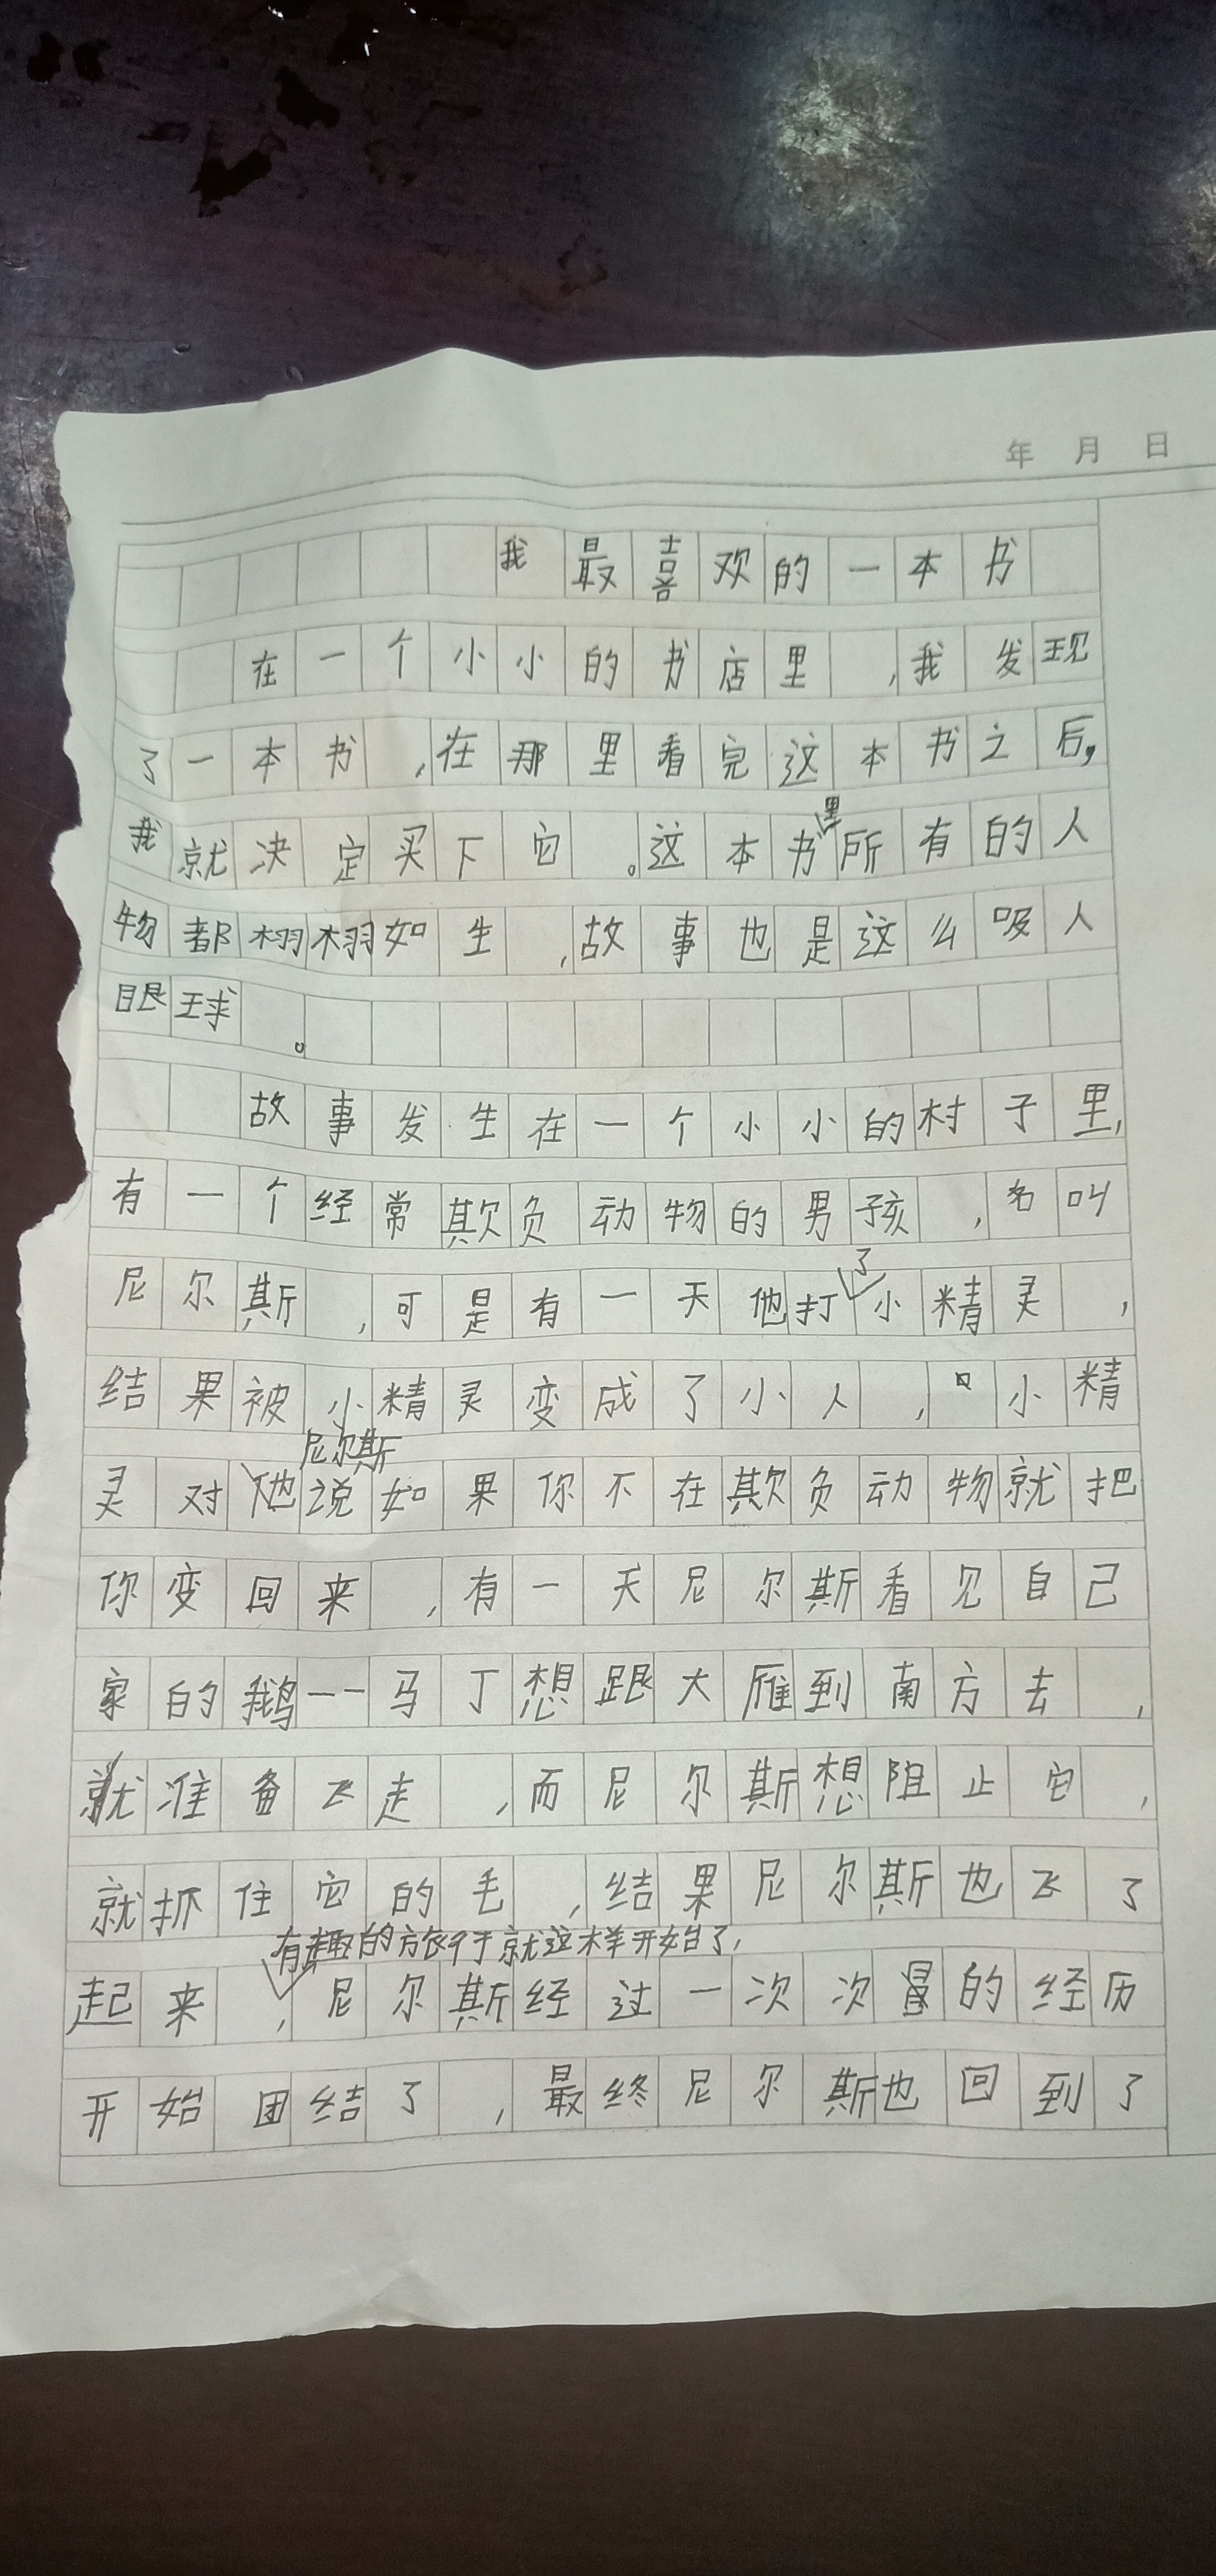 年 月 日
我最喜欢的一本书
在一个小小的书店里,我发现
了一本书,在那里看完这本书之后,
我就决定买下它。这本书里所有的人
物都栩栩如生,故事也是这么吸人
眼球。
故事发生在一个小小的村子里,
有一个经常欺负动物的男孩,名叫
尼尔斯,可是有一天他打了小精灵,
结果被小精灵变成了小人,小精
尼尔斯
灵对他说如果你不在欺负动物就把
你变回来,有一天尼尔斯看见自己
家的鹅——马丁想跟大雁到南方去,
就准备飞走,而尼尔斯想阻止它,
就抓住它的毛,结果尼尔斯也飞了
有趣的旅行于就这样开始了,
起来,尼尔斯经过一次次冒的经历
开始团结了,最终尼尔斯也回到了